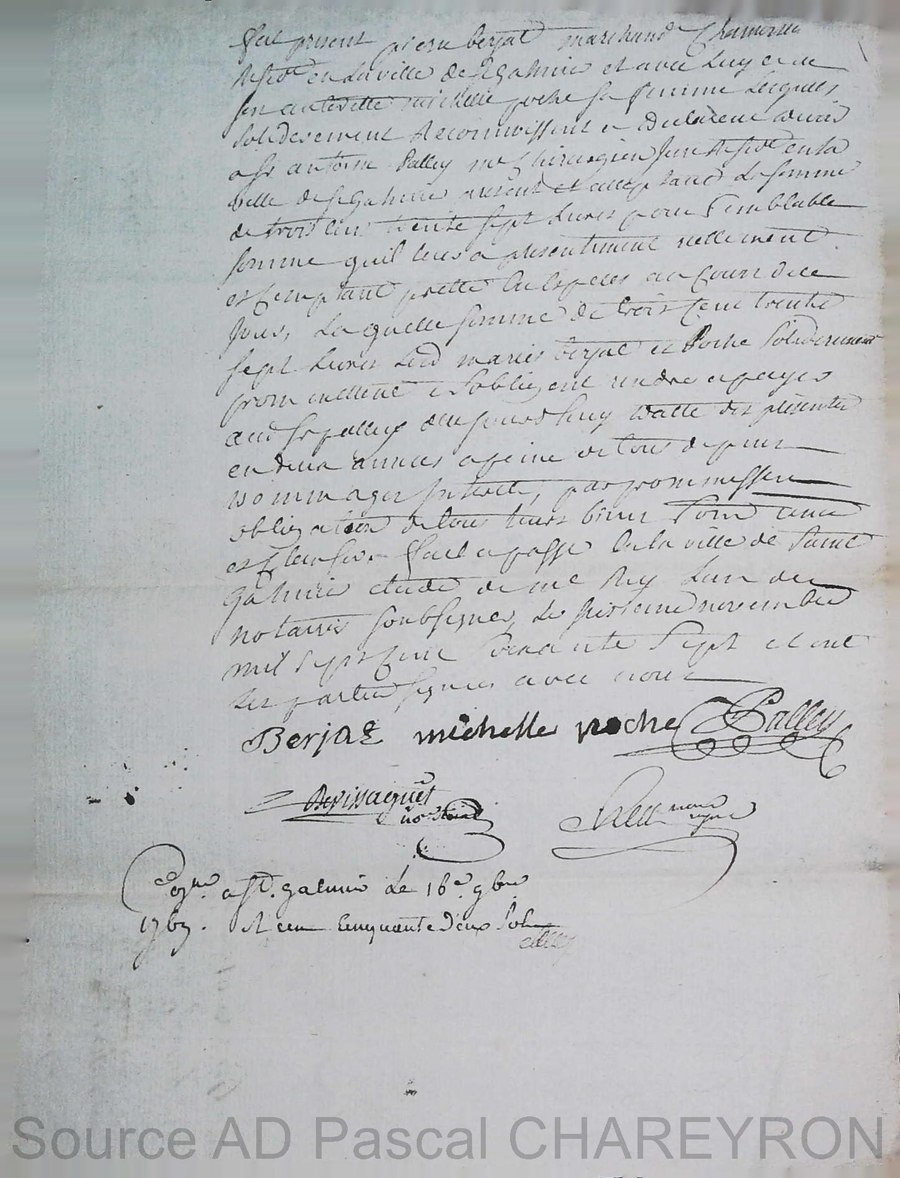 fut present pierre berjat marchand Chamoiseur
Resid en La ville de St Galmier et avec Luy et de
son authorité michelle roche sa femme Lesquels
solidairement Reconnoissent et declarent devoir
a Sr antoine Palley me Chirurgien Juré Resid en la
ville de St Galmier present et acceptant La somme
de trois cent trente sept Livres pour Semblable
somme quil leur a presentement réellement
et Comptant pretté En Especes au Cours de ce
Jour, La quelle somme de trois Cent trente
sept Livres Lesd mariés berjat et Roche Solidairement
promettent et sobligent rendre et payer
aud Sr palley du jourdhuy datte des présentes
en deux années a peine de tous depens
dommages Interets, par promesses
obligation de tous leurs biens Soumis
et Clauses. fait et passé En la ville de Saint
Galmier etude de me Rey Lun des
notaires soubsignes, Le seizieme novembre
mil Sept Cent Soixante Sept et ont
Les parties signées avec nous
Berjat michelle roche Palley
notaire
a St. galmier Le 16e. 9bre
1767. R cinquante deux Sols
Source AD Pascal CHAREYRON